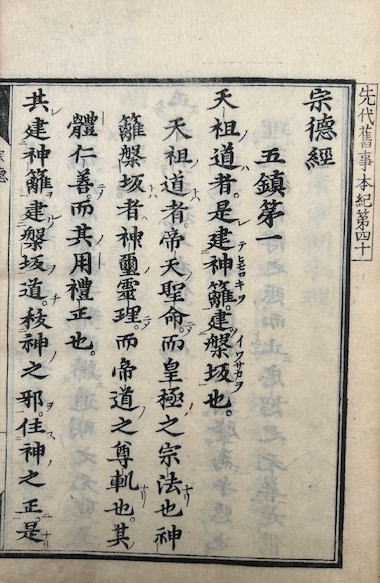 先代舊事本紀第四十
宗德經
五鎮第一
天祖道者。是建神籬。建槃坂也。
天祖道者。帝天聖命。而皇極之宗法也神
籬槃坂者。神璽靈理。而帝道之尊軌也。其
體仁善。而其用禮正也。
其建神籬建槃坂道。秡神之邪。住神之正。是